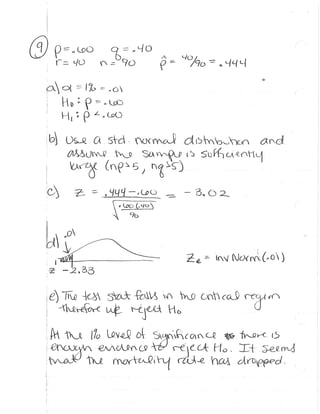 9 p=.600 q=.40
r=40 n=90 p̂ = 40/90 = .444
a) α=1% = .01
H₀: p = .60
H₁: p < .60
b) Use a std. normal distribution and
assume the sample is sufficiently
large (np>5, nq>5)
c) z = .444-.60 / √(.60(.40)/90) = -3.02
d) .01
z -2.33 Zc = invNorm(.01)
e) The test stat falls in the critical region
therefore we reject H₀
At the 1% level of significance there is
enough evidence to reject H₀. It seems
that the mortality rate has dropped.